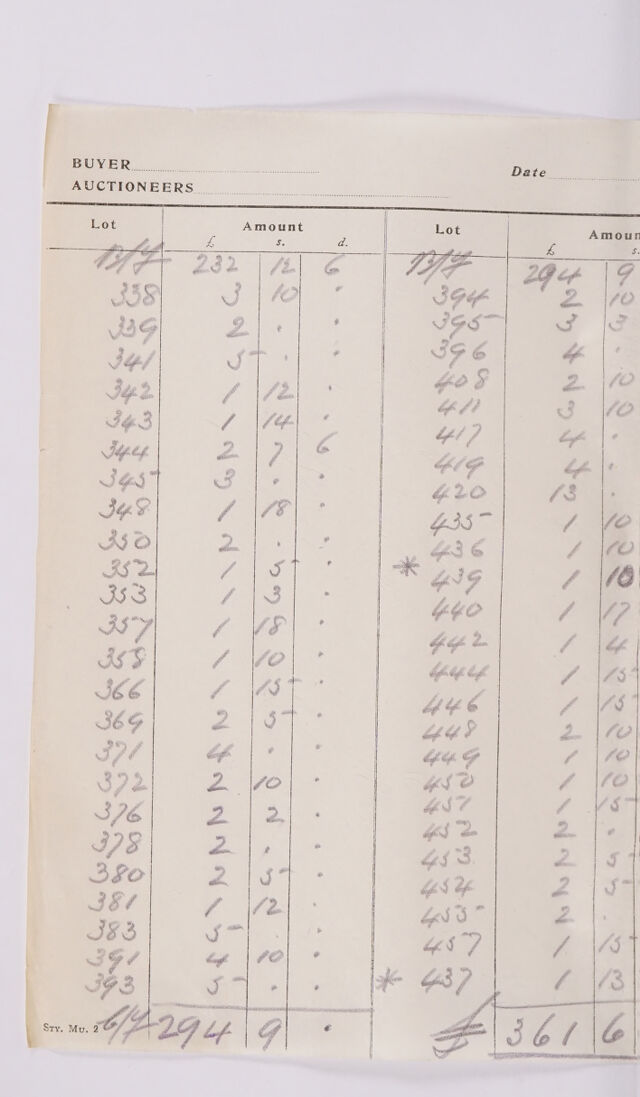 BUYER
Date
AUCTIONEERS
Lot Amount
£ s. d.
B/f 232 12 6
338 3 10 .
339 2 . .
341 5 . .
342 1 12 .
343 1 14 .
344 2 7 6
345 3 . .
348 1 18 .
350 2 . .
352 1 5 .
353 1 3 .
357 1 18 .
358 1 10 .
366 1 15 .
369 2 5 .
371 4 . .
372 2 10 .
376 2 2 .
378 2 . .
380 2 5 .
381 1 12 .
383 5 . .
391 4 10 .
393 5 . .
C/f 294 9 .
STY. MU. 2
Lot Amoun
£ s.
B/f 294 9
394 2 10
395 3 3
396 4 .
408 2 10
411 3 10
417 4 .
419 4 .
420 13 .
435 1 10
436 1 10
* 439 1 10
440 1 17
442 1 4
444 1 15
446 1 15
448 2 10
449 1 10
450 1 10
451 1 15
452 2 .
453 2 5
454 2 5
455 2 .
457 1 15
* 437 1 13
£ 361 6